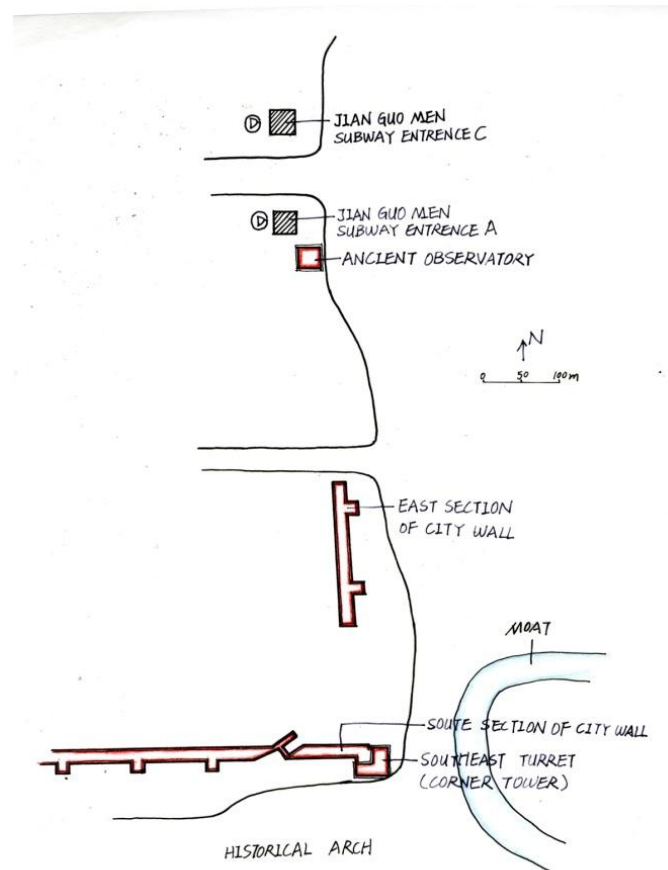 JIAN GUO MEN
SUBWAY ENTRENCE C
D
JIAN GUO MEN
SUBWAY ENTRENCE A
D
ANCIENT OBSERVATORY
N
0 50 100m
EAST SECTION
OF CITY WALL
MOAT
SOUTE SECTION OF CITY WALL
SOUTHEAST TURRET
(CORNER TOWER)
HISTORICAL ARCH